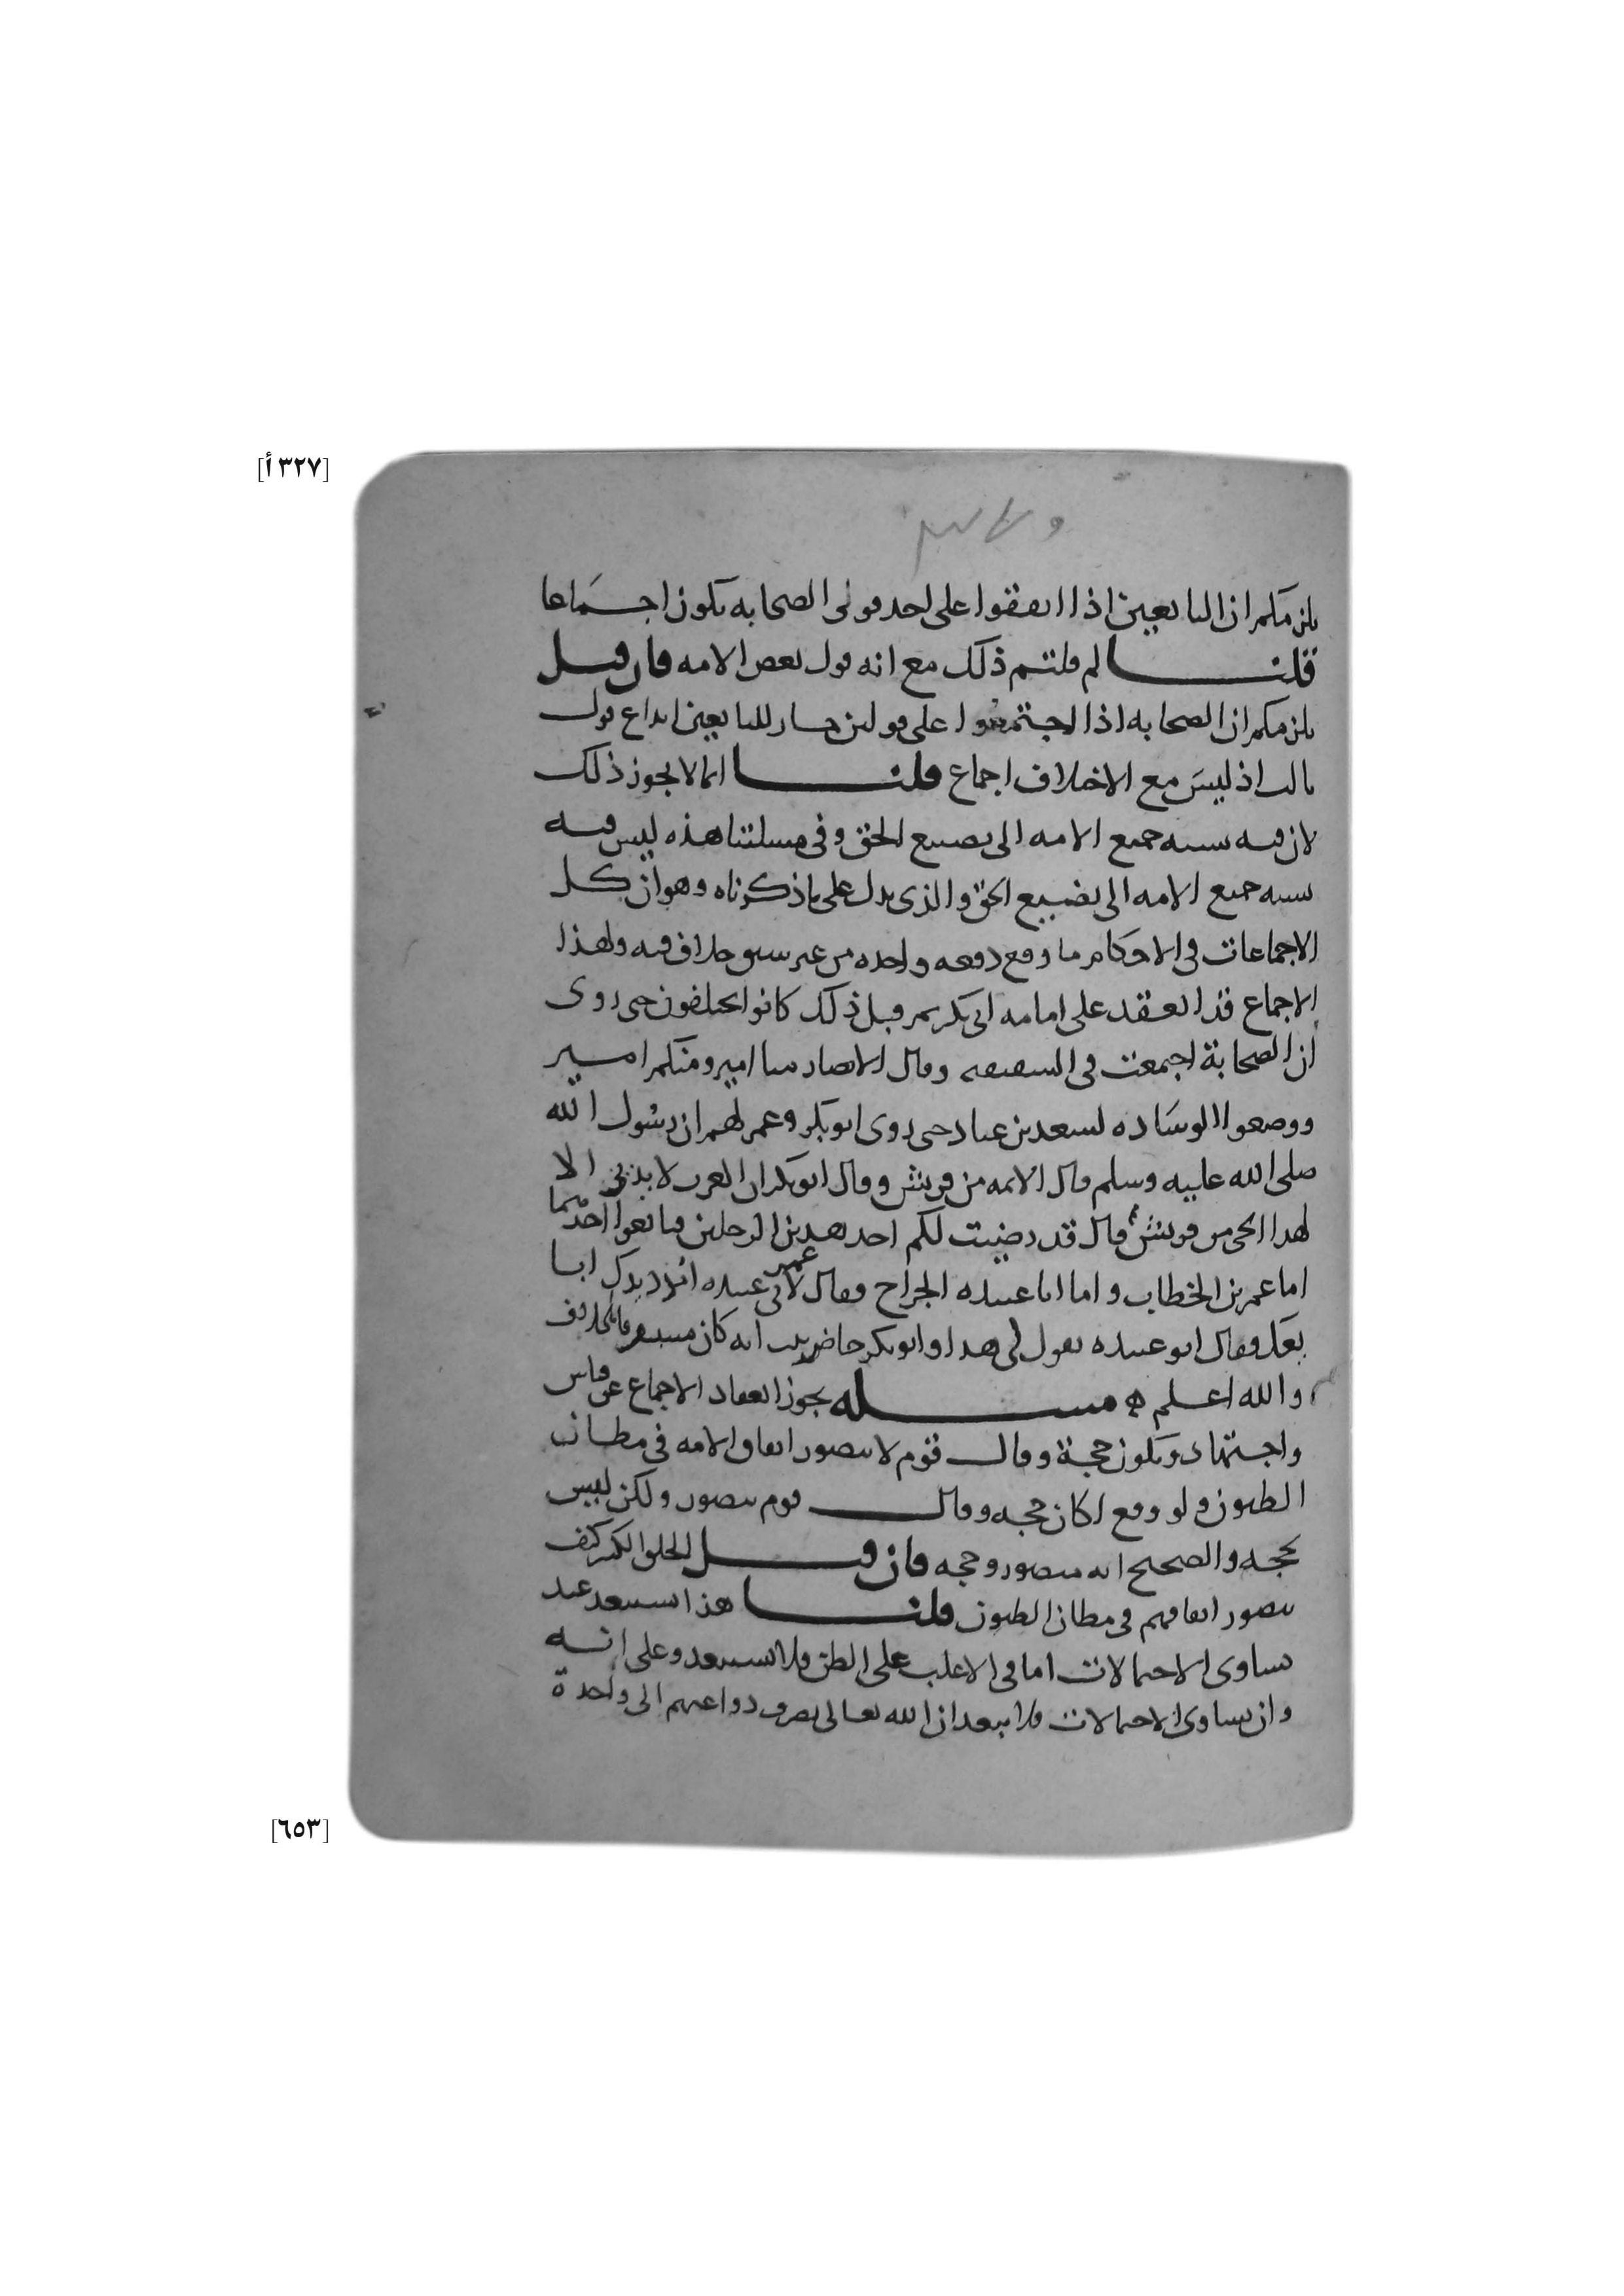 [٣٢٧أ]
يلزمكم ان التابعين اذا اتفقوا على احد قولي الصحابه يكون اجماعا
قلنا لم قلتم ذلك مع انه قول بعض الامه فان قيل
يلزمكم ان الصحابه اذا اجتمعوا على قولين جاز للتابعين ابداع قول
ثالث اذ ليس مع الاختلاف اجماع قلنا انما لا يجوز ذلك
لان فيه نسبه جميع الامه الى تضييع الحق وفي مسلتنا هذه ليس فيه
نسبه جميع الامه الى تضييع الحق والذي يدل على ما ذكرناه وهو ان كل
الاجماعات في الاحكام ما وقع دفعه واحده من غير سبق خلاف فيه ولهذا
الاجماع قد انعقد على امامه ابي بكر وقبل ذلك كانوا يختلفون حتى روى
ان الصحابة اجتمعت في السقيفه وقال الانصار منا امير ومنكم امير
ووضعوا الوساده لسعد بن عباد حتى روى ابو بكر وعمر لهم ان رسول الله
صلى الله عليه وسلم قال الائمه من قريش وقال ابو بكر ان العرب لا يدين الا
لهذا الحي من قريش قال قد رضيت لكم احد هدين الرجلين فبايعوا احدهما
اما عمر بن الخطاب واما ابا عبيده الجراح فقال عمر لابي عبيده امدد يدك ابا
يعك فقال ابو عبيده تقول لي هدا وابو بكر حاضر
والله اعلم ه مسله يجوز انعقاد الاجماع عن قياس
واجتهاد ويكون حجة وقال قوم لا يتصور اتفاق الامه في مظان
الظنون ولو وقع لكان حجه وقال قوم يتصور ولكن ليس
بحجه والصحيح انه متصور وحجه فان قيل الخلق الكثير كيف
يتصور اتفاقهم في مظان الظنون قلنا هذا يستبعد عند
تساوى الاحتمالات اما في الاغلب على الظن فلا يستبعد وعلى انه
وان تساوى الاحتمالات فلا يبعد ان الله تعالى يصرف دواعيهم الى واحدة
[٦٥٣]